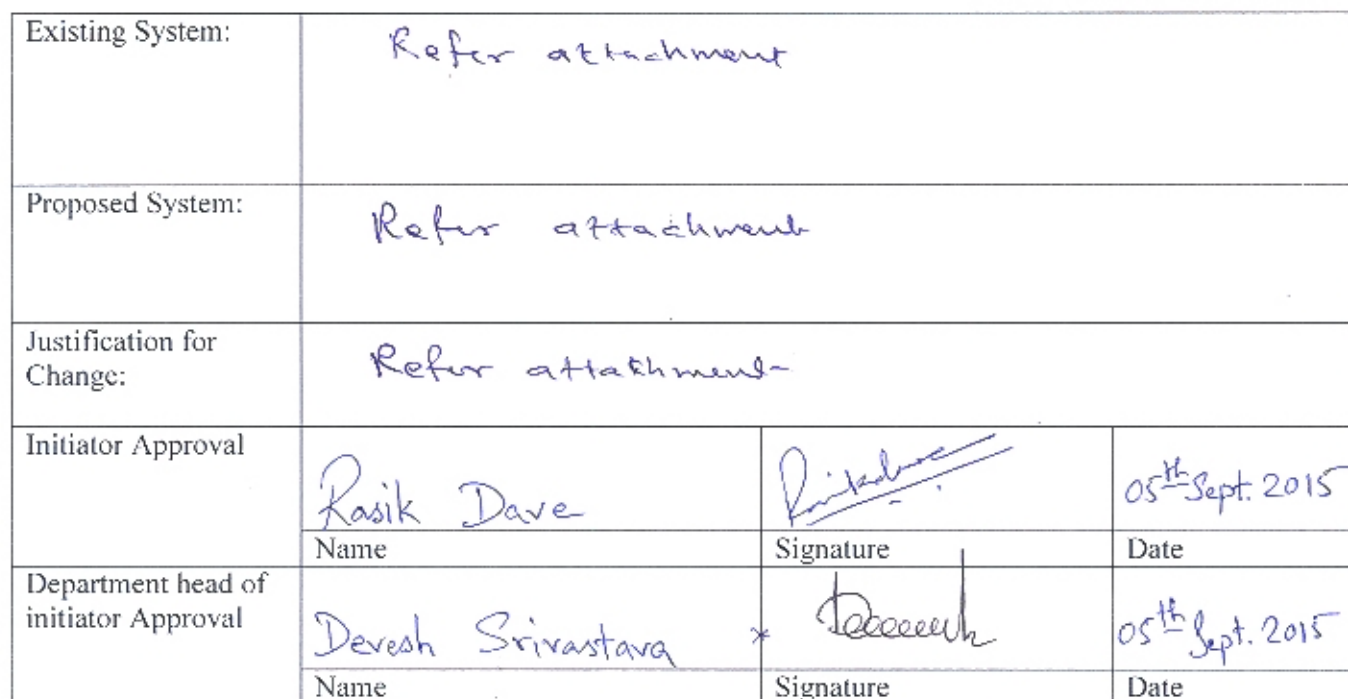 Existing System:
Refer attachment
Proposed System:
Refer attachment
Justification for
Change:
Refer attachment
Initiator Approval
Rasik Dave
05th Sept. 2015
Name Signature Date
Department head of
initiator Approval
Devesh Srivastava
05th Sept. 2015
Name Signature Date